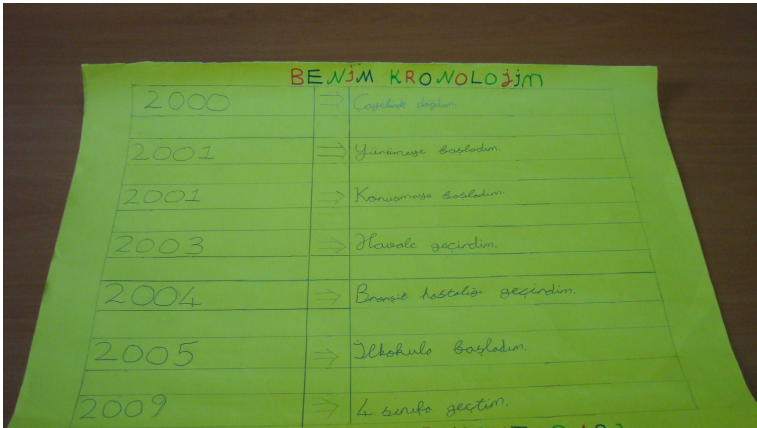 BENİM KRONOLOJİM
2000 ⇒ Çayelinde doğdum.
2001 ⇒ Yürümeye başladım.
2001 ⇒ Konuşmaya başladım.
2003 ⇒ Havale geçirdim.
2004 ⇒ Bronşit hastalığı geçirdim.
2005 ⇒ İlkokula başladım.
2009 ⇒ 4 sınıfa geçtim.